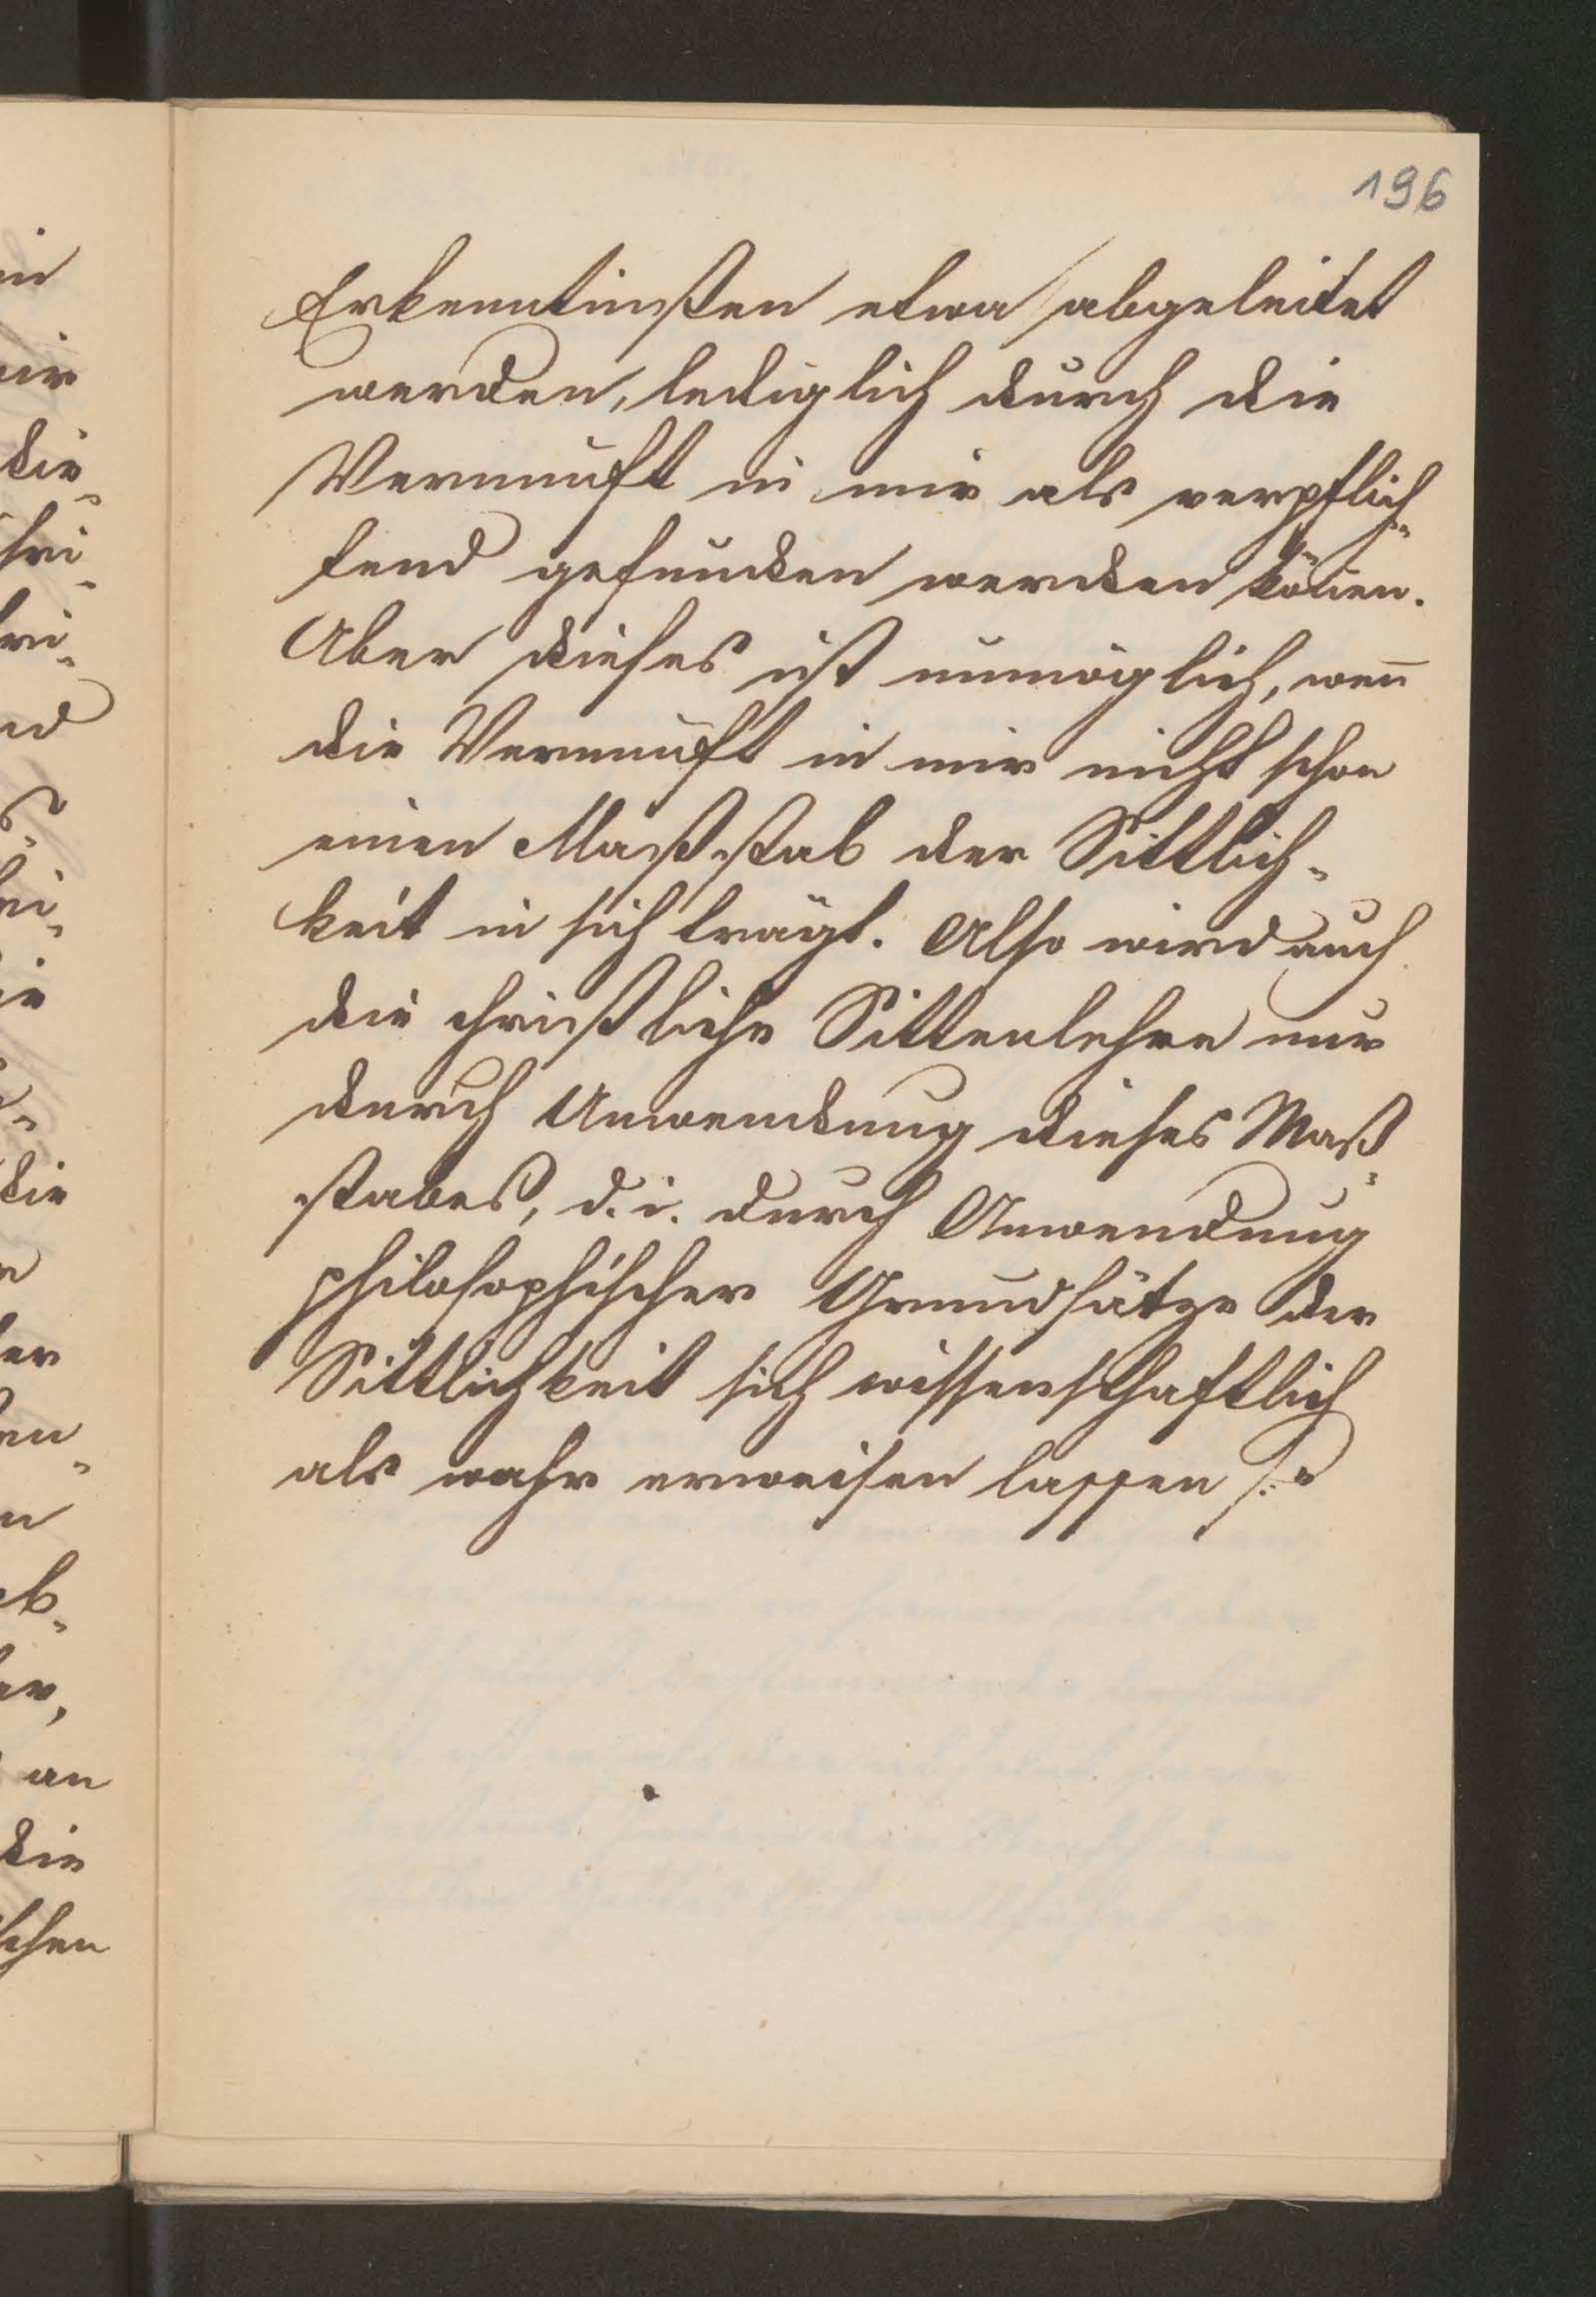 196
Erkenntnißen etwa abgeleitet
werden, lediglich durch die
Vernunft in mir als verpflich-
tend gefunden werden kön̅en.
Aber dieses ist unmöglich, wen̅
die Vernunft in mir nicht schon
einen Maßstab der Sittlich-
keit in sich trägt. Also wird auch
die christliche Sittenlehre nur
durch Anwendung dieses Maß-
stabes, d. i. durch Anwendung
philosophischer Grundsätze der
Sittlichkeit sich wissenschaftlich
als wahr erweisen lassen